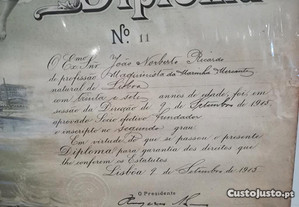 Diploma
Nº 11
O Exmo Snr João Norberto Ricardo
de profissão Maquinista da Marinha Mercante
natural de Lisboa
com trinta e sete annos de edade, foi, em
sessão da Direcção de 2 de Setembro de 1905,
approvado Socio efetivo fundador
e inscripto no segundo grau.
Em virtude do que se passou o presente
Diploma para garantia dos direitos que
lhe conferem os Estatutos.
Lisboa 9 de Setembro de 1905
O Presidente
CustoJusto.pt